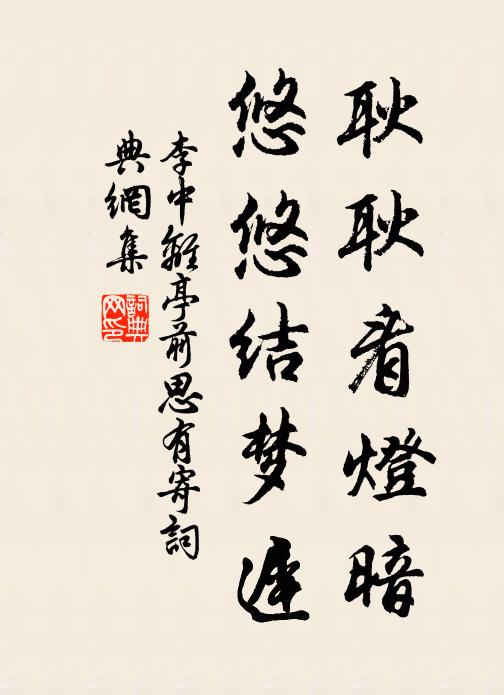 耿耿看燈暗
悠悠結梦遲
李中離亭前思有寄詞
典網集
詞典网印